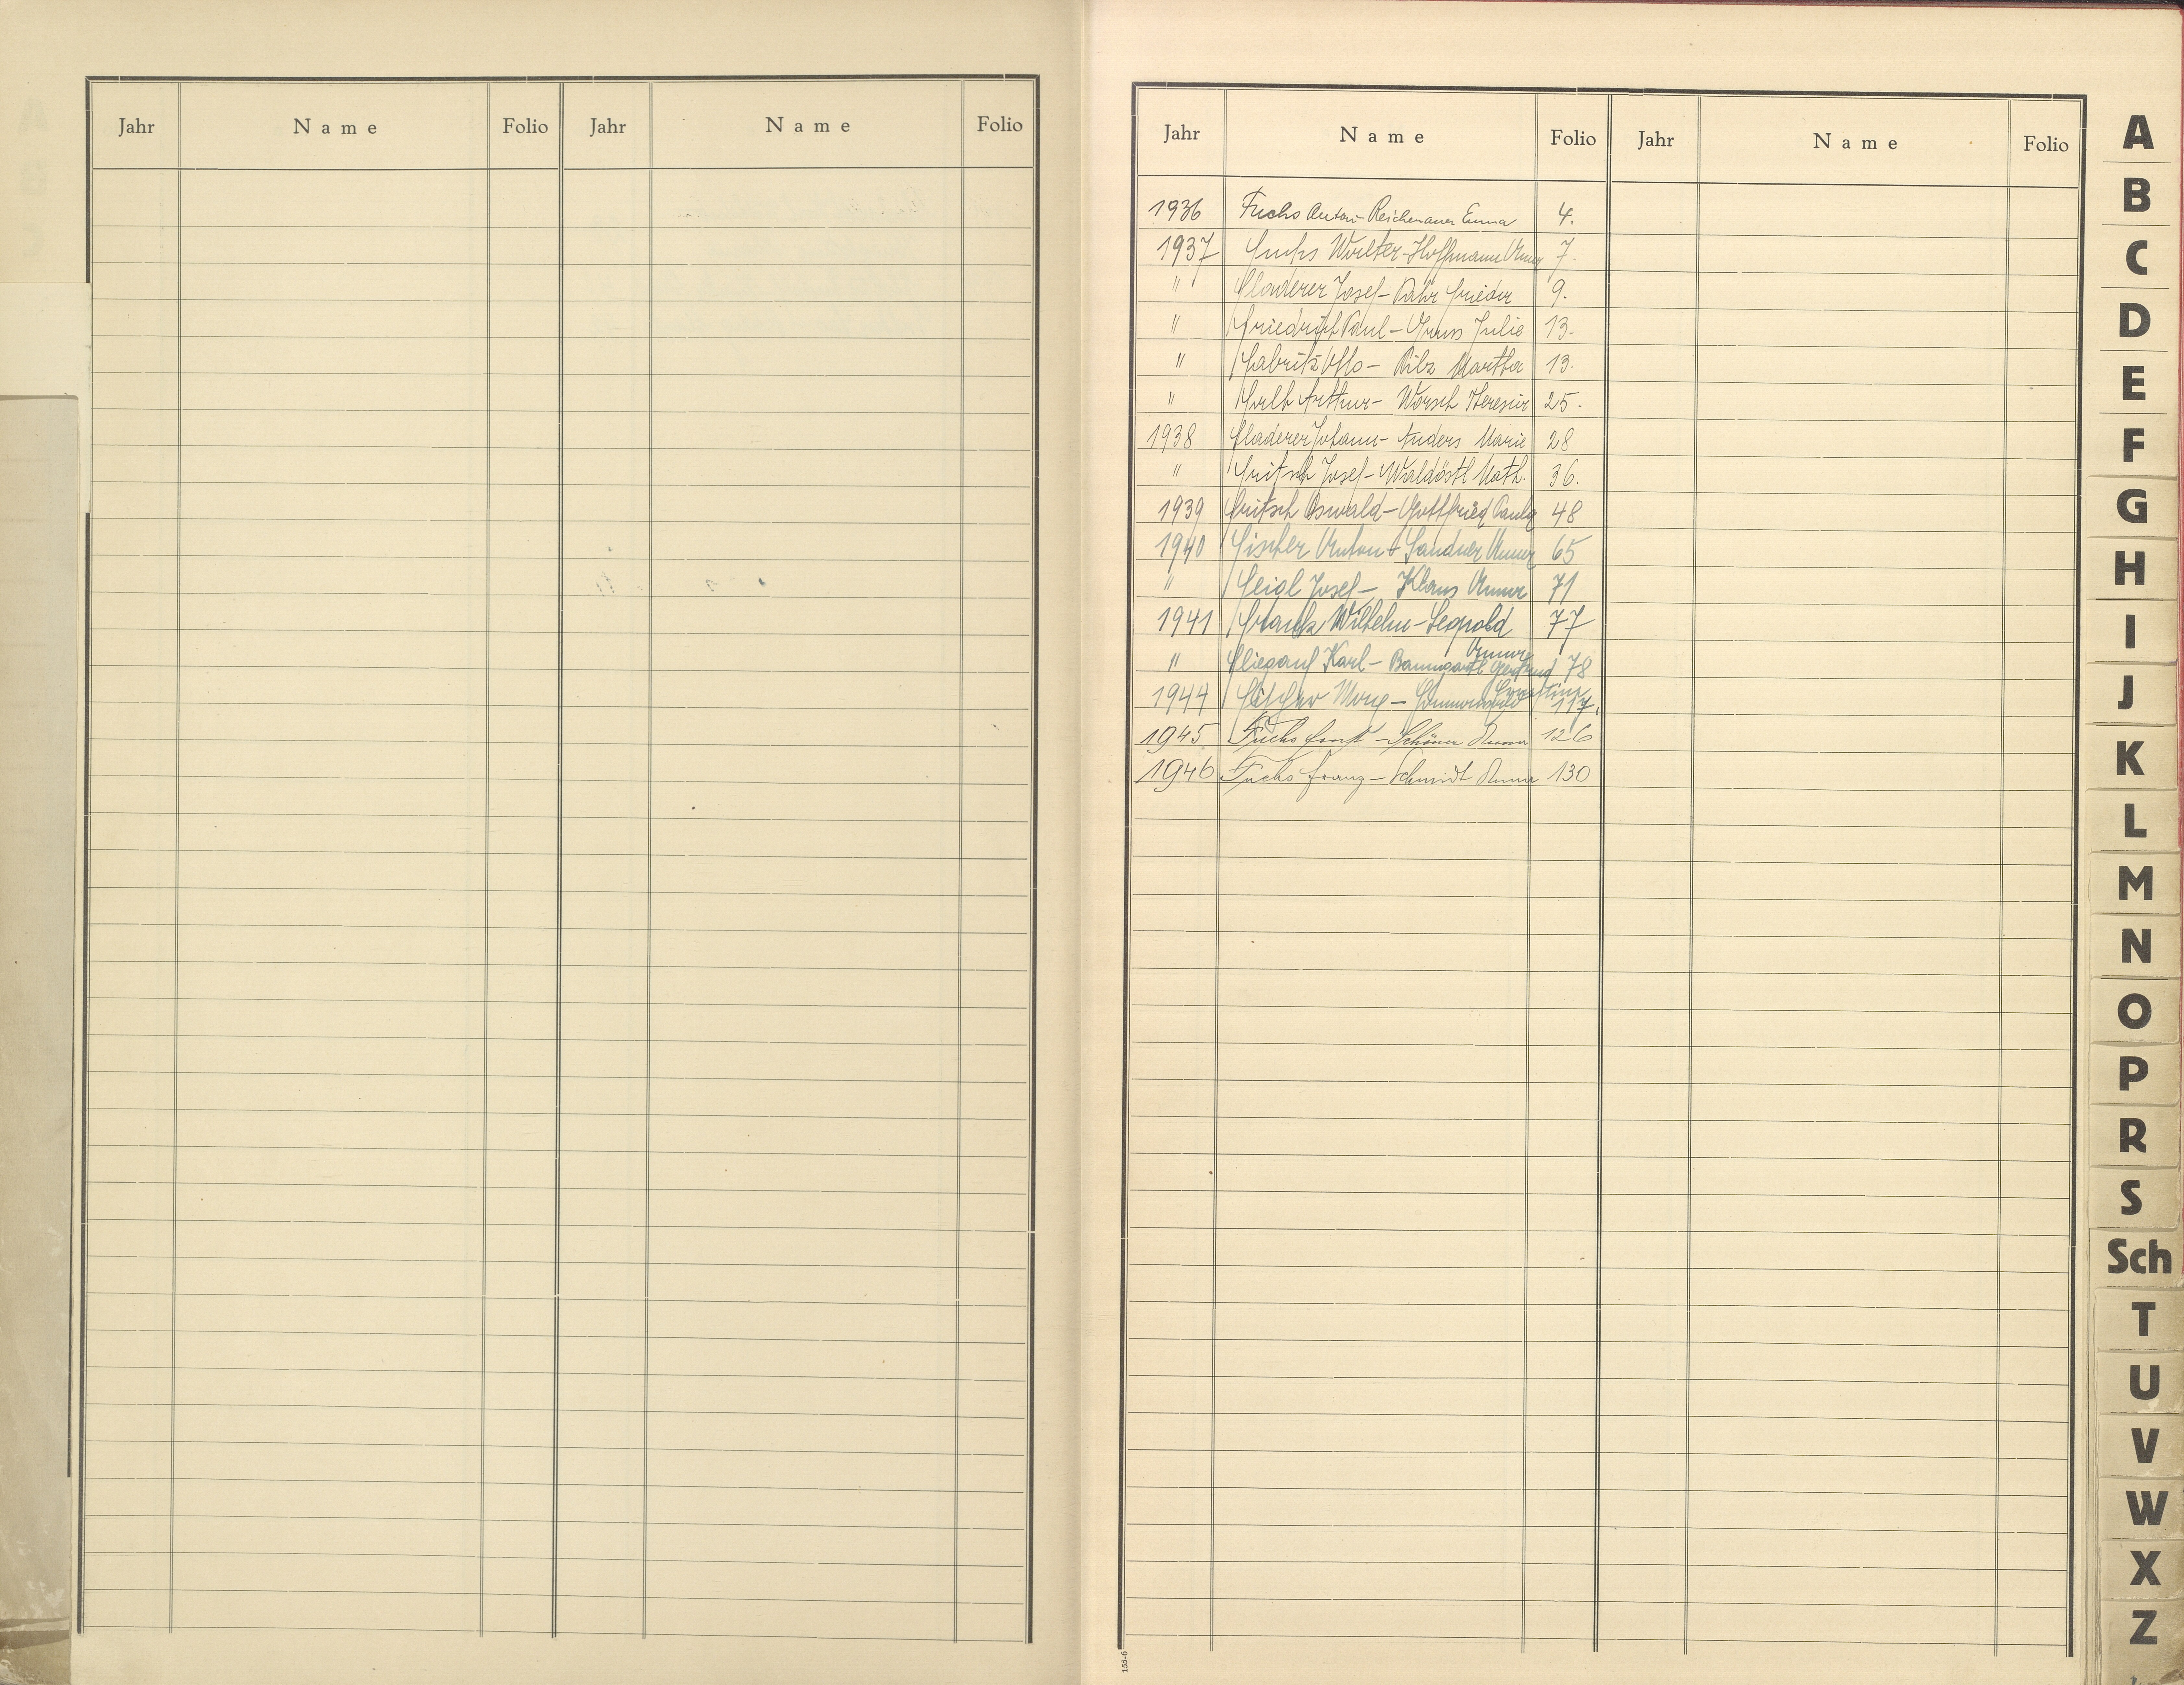 Jahr Name Folio Jahr Name Folio
Jahr Name Folio Jahr Name Folio
1936 Fuchs Anton - Reichenauer Emma 4.
1937 Fuchs Walter - Hoffmann Anna 7.
" Fladerer Josef - Frieda 9.
" Friedrich Paul - Julie 13.
" Otto - Pilz Martha 13.
" Arthur - Worsch Theresia 25.
1938 Fladerer Johann - Anders Marie 28
" Fritsch Josef - Math. 36.
1939 Fritsch Oswald - Gottfried Paula 48
1940 Fischer Anton - Sandner Anna 65
" Feigl Josef - Klaus Anna 71
1941 Wilhelm - Leopold Anna 77
" Fliegauf Karl - Baumgartl Gertrud 78
1944 Ernestine 117.
1945 Fuchs Ernst - Schöner Anna 126
1946 Fuchs Franz - Schmidt Anna 130
153-6
A
B
C
D
E
F
G
H
I
J
K
L
M
N
O
P
R
S
Sch
T
U
V
W
X
Z